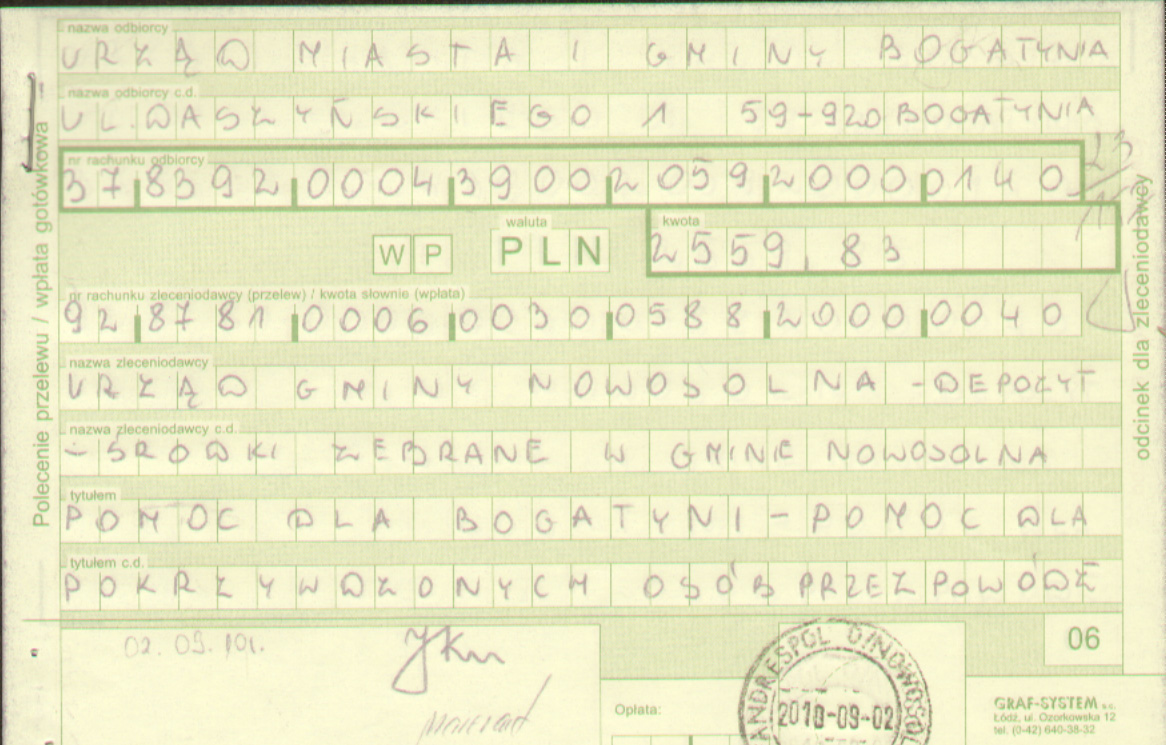 nazwa odbiorcy
URZĄD MIASTA I GMINY BOGATYNIA
nazwa odbiorcy c.d.
UL. DASZYŃSKIEGO 1 59-920 BOGATYNIA
nr rachunku odbiorcy
37 8392 0004 3900 2059 2000 0140
waluta
kwota
WP PLN 2559,83
nr rachunku zleceniodawcy (przelew) / kwota słownie (wpłata)
92 8781 0006 0030 0588 2000 0040
nazwa zleceniodawcy
URZĄD GMINY NOWOSOLNA - DEPOZYT
nazwa zleceniodawcy c.d.
- ŚRODKI ZEBRANE W GMINIE NOWOSOLNA
tytułem
POMOC DLA BOGATYNI - POMOC DLA
tytułem c.d.
POKRZYWDZONYCH OSÓB PRZEZ POWÓDŹ
Polecenie przelewu / wpłata gotówkowa
odcinek dla zleceniodawcy
02.09.10r.
06
Opłata:
ANDRESPOL
2010-09-02
GRAF-SYSTEM s.c.
Łódź, ul. Ozorkowska 12
tel. (0-42) 640-38-32